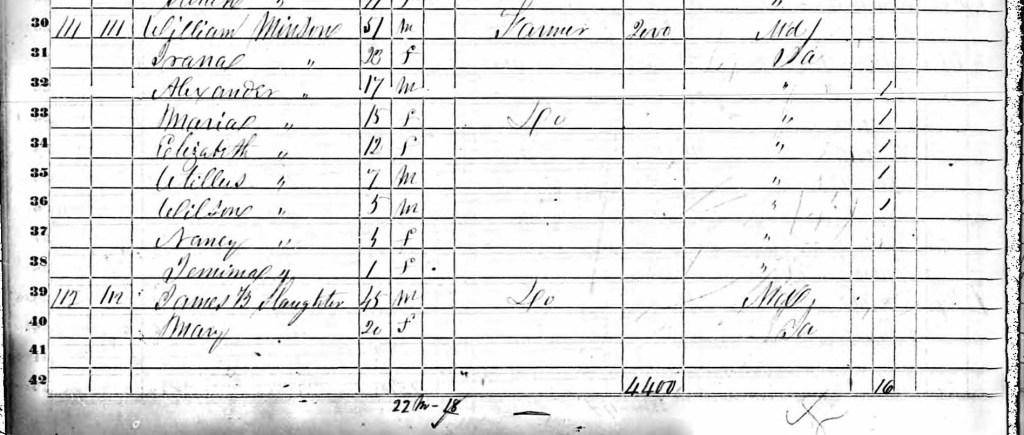 30 111 111 William Minson 51 m Farmer 2000 Md
31 " f Va
32 Alexander " 17 m " 1
33 Maria " 15 f Do " 1
34 Elizabeth " 12 f " 1
35 " 7 m " 1
36 Wilson " 5 m " 1
37 Nancy " f "
38 Jemima " 1 f "
39 112 112 James B Slaughter 45 m Do Md
40 Mary 20 f Va
41
42 4400 16
22 m - 18